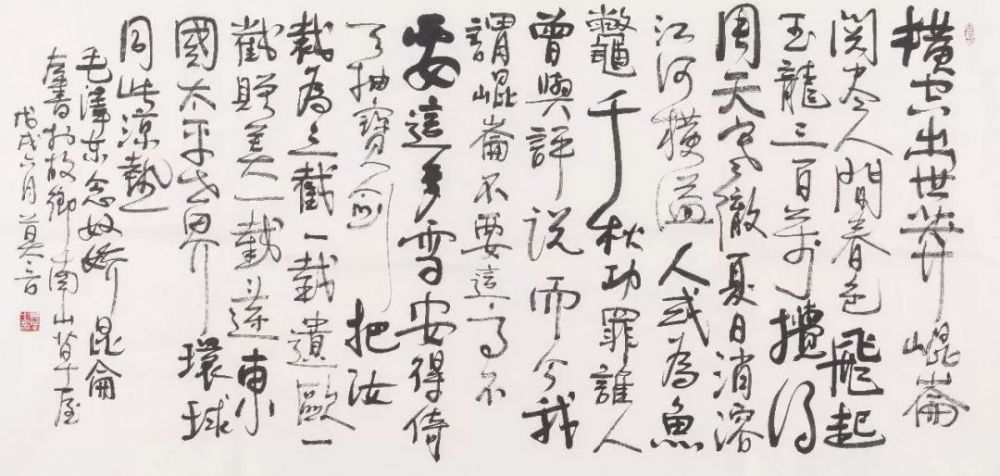 橫空出世莽崐崙
閱尽人間春色飛起
玉龍三百万攪得
周天寒徹夏日消溶
江河橫溢人或為魚
鼈千秋功罪誰人
曾與評說而今我
謂崐崙不要這高不
要這多雪安得倚
天抽寶劍把汝
裁為三截一截遺歐一
截贈美一截還東
國太平世界環球
同此涼熱
毛澤东念奴嬌昆侖
書於故鄉南山草屋
戊戌六月莫言